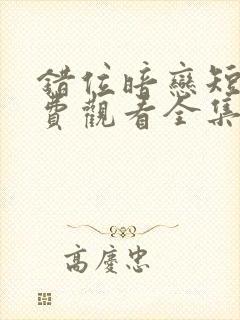 錯位暗戀短
費觀看全集
高慶忠